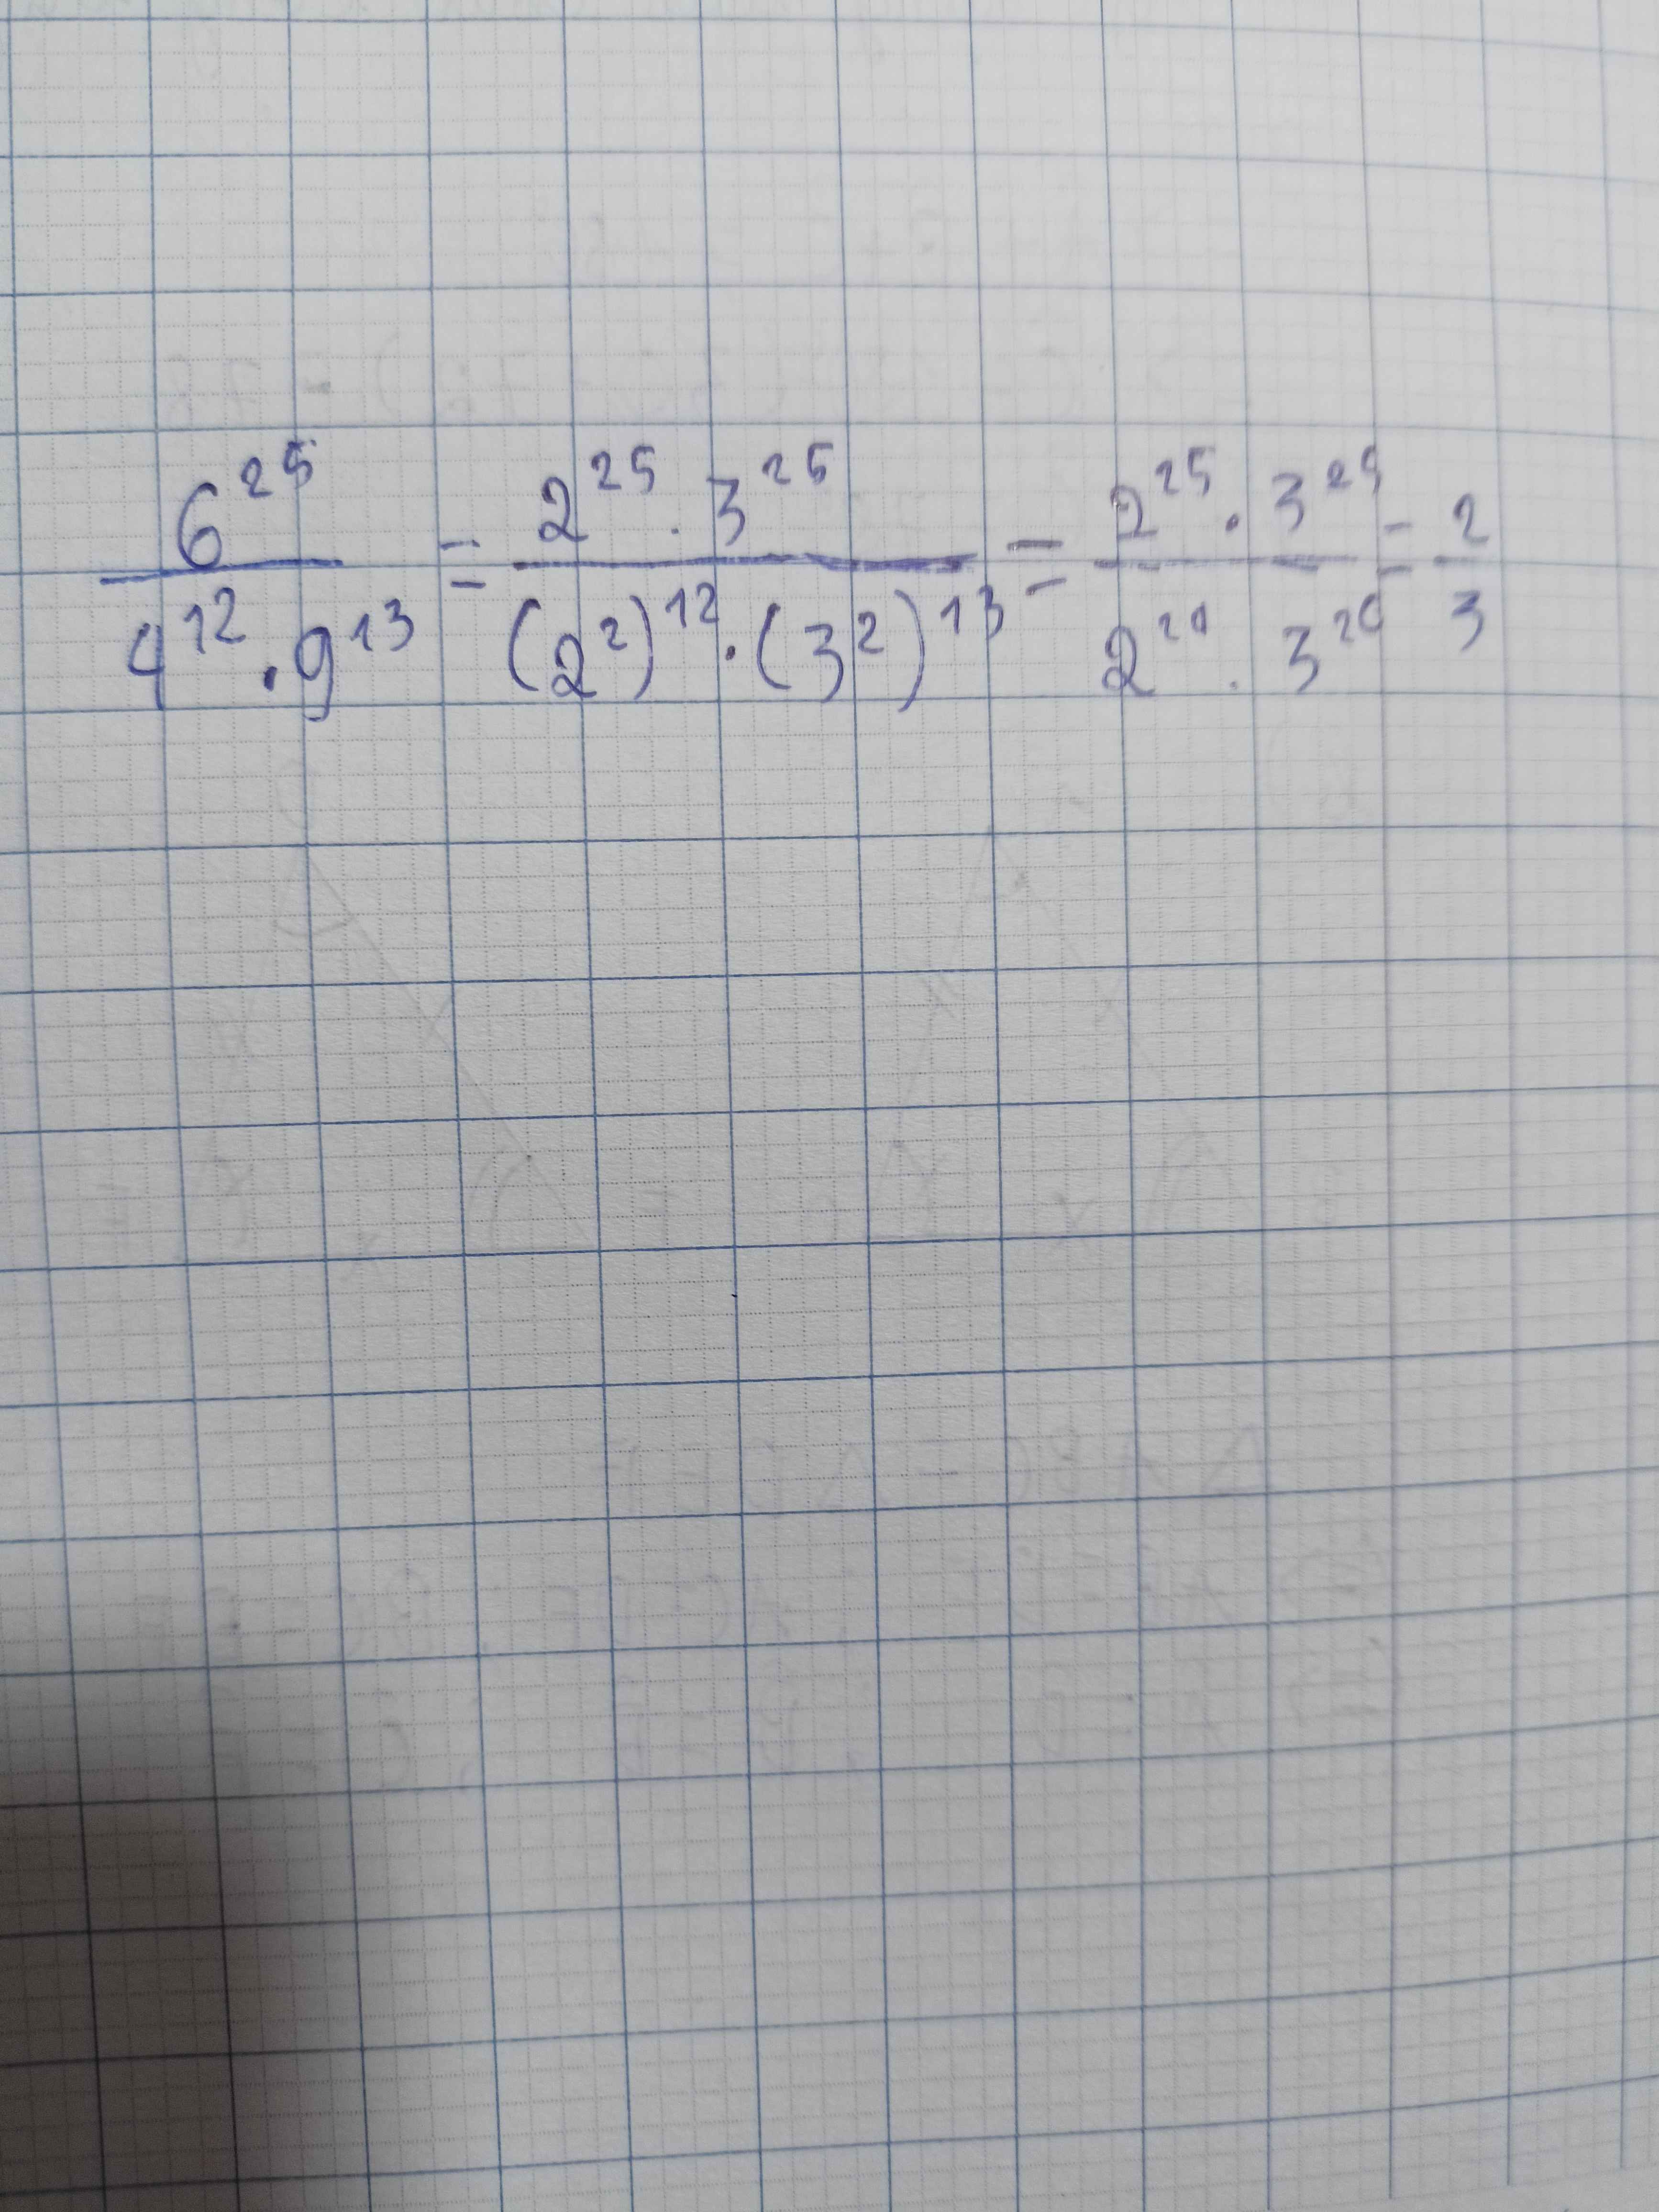 6²⁵ / 4¹² · 9¹³ = 2²⁵ · 3²⁵ / (2²)¹² · (3²)¹³ = 2²⁵ · 3²⁵ / 2²⁴ · 3²⁶ = 2 / 3